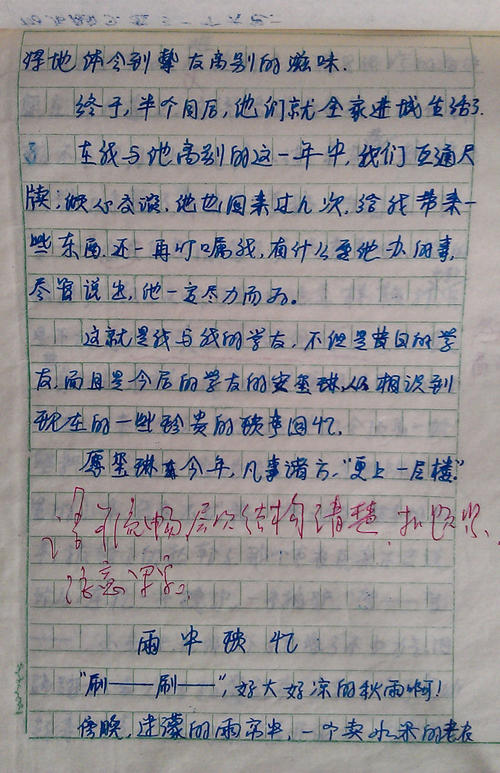 得地体会到挚友离别的滋味.
终于,半个月后,他们就全家进城生活了.
在我与他离别的这一年中,我们互通尺
牍,倾心交谈.他也回来过几次,给我带来一
些东西.还一再叮嘱我,有什么要他办的事,
尽管说出,他一定尽力而为.
这就是我与我的学友,不但是昔日的学
友,而且是今后的学友的安玺琳从相识到
现在的一些珍贵的琐事回忆.
愿玺琳在今年,凡事诸方,“更上一层楼”
语言流畅 层次结构清楚
注意
雨中琐忆
“刷——刷——”,好大好凉的秋雨啊!
傍晚,迷濛的雨帘中,一个卖水果的老农